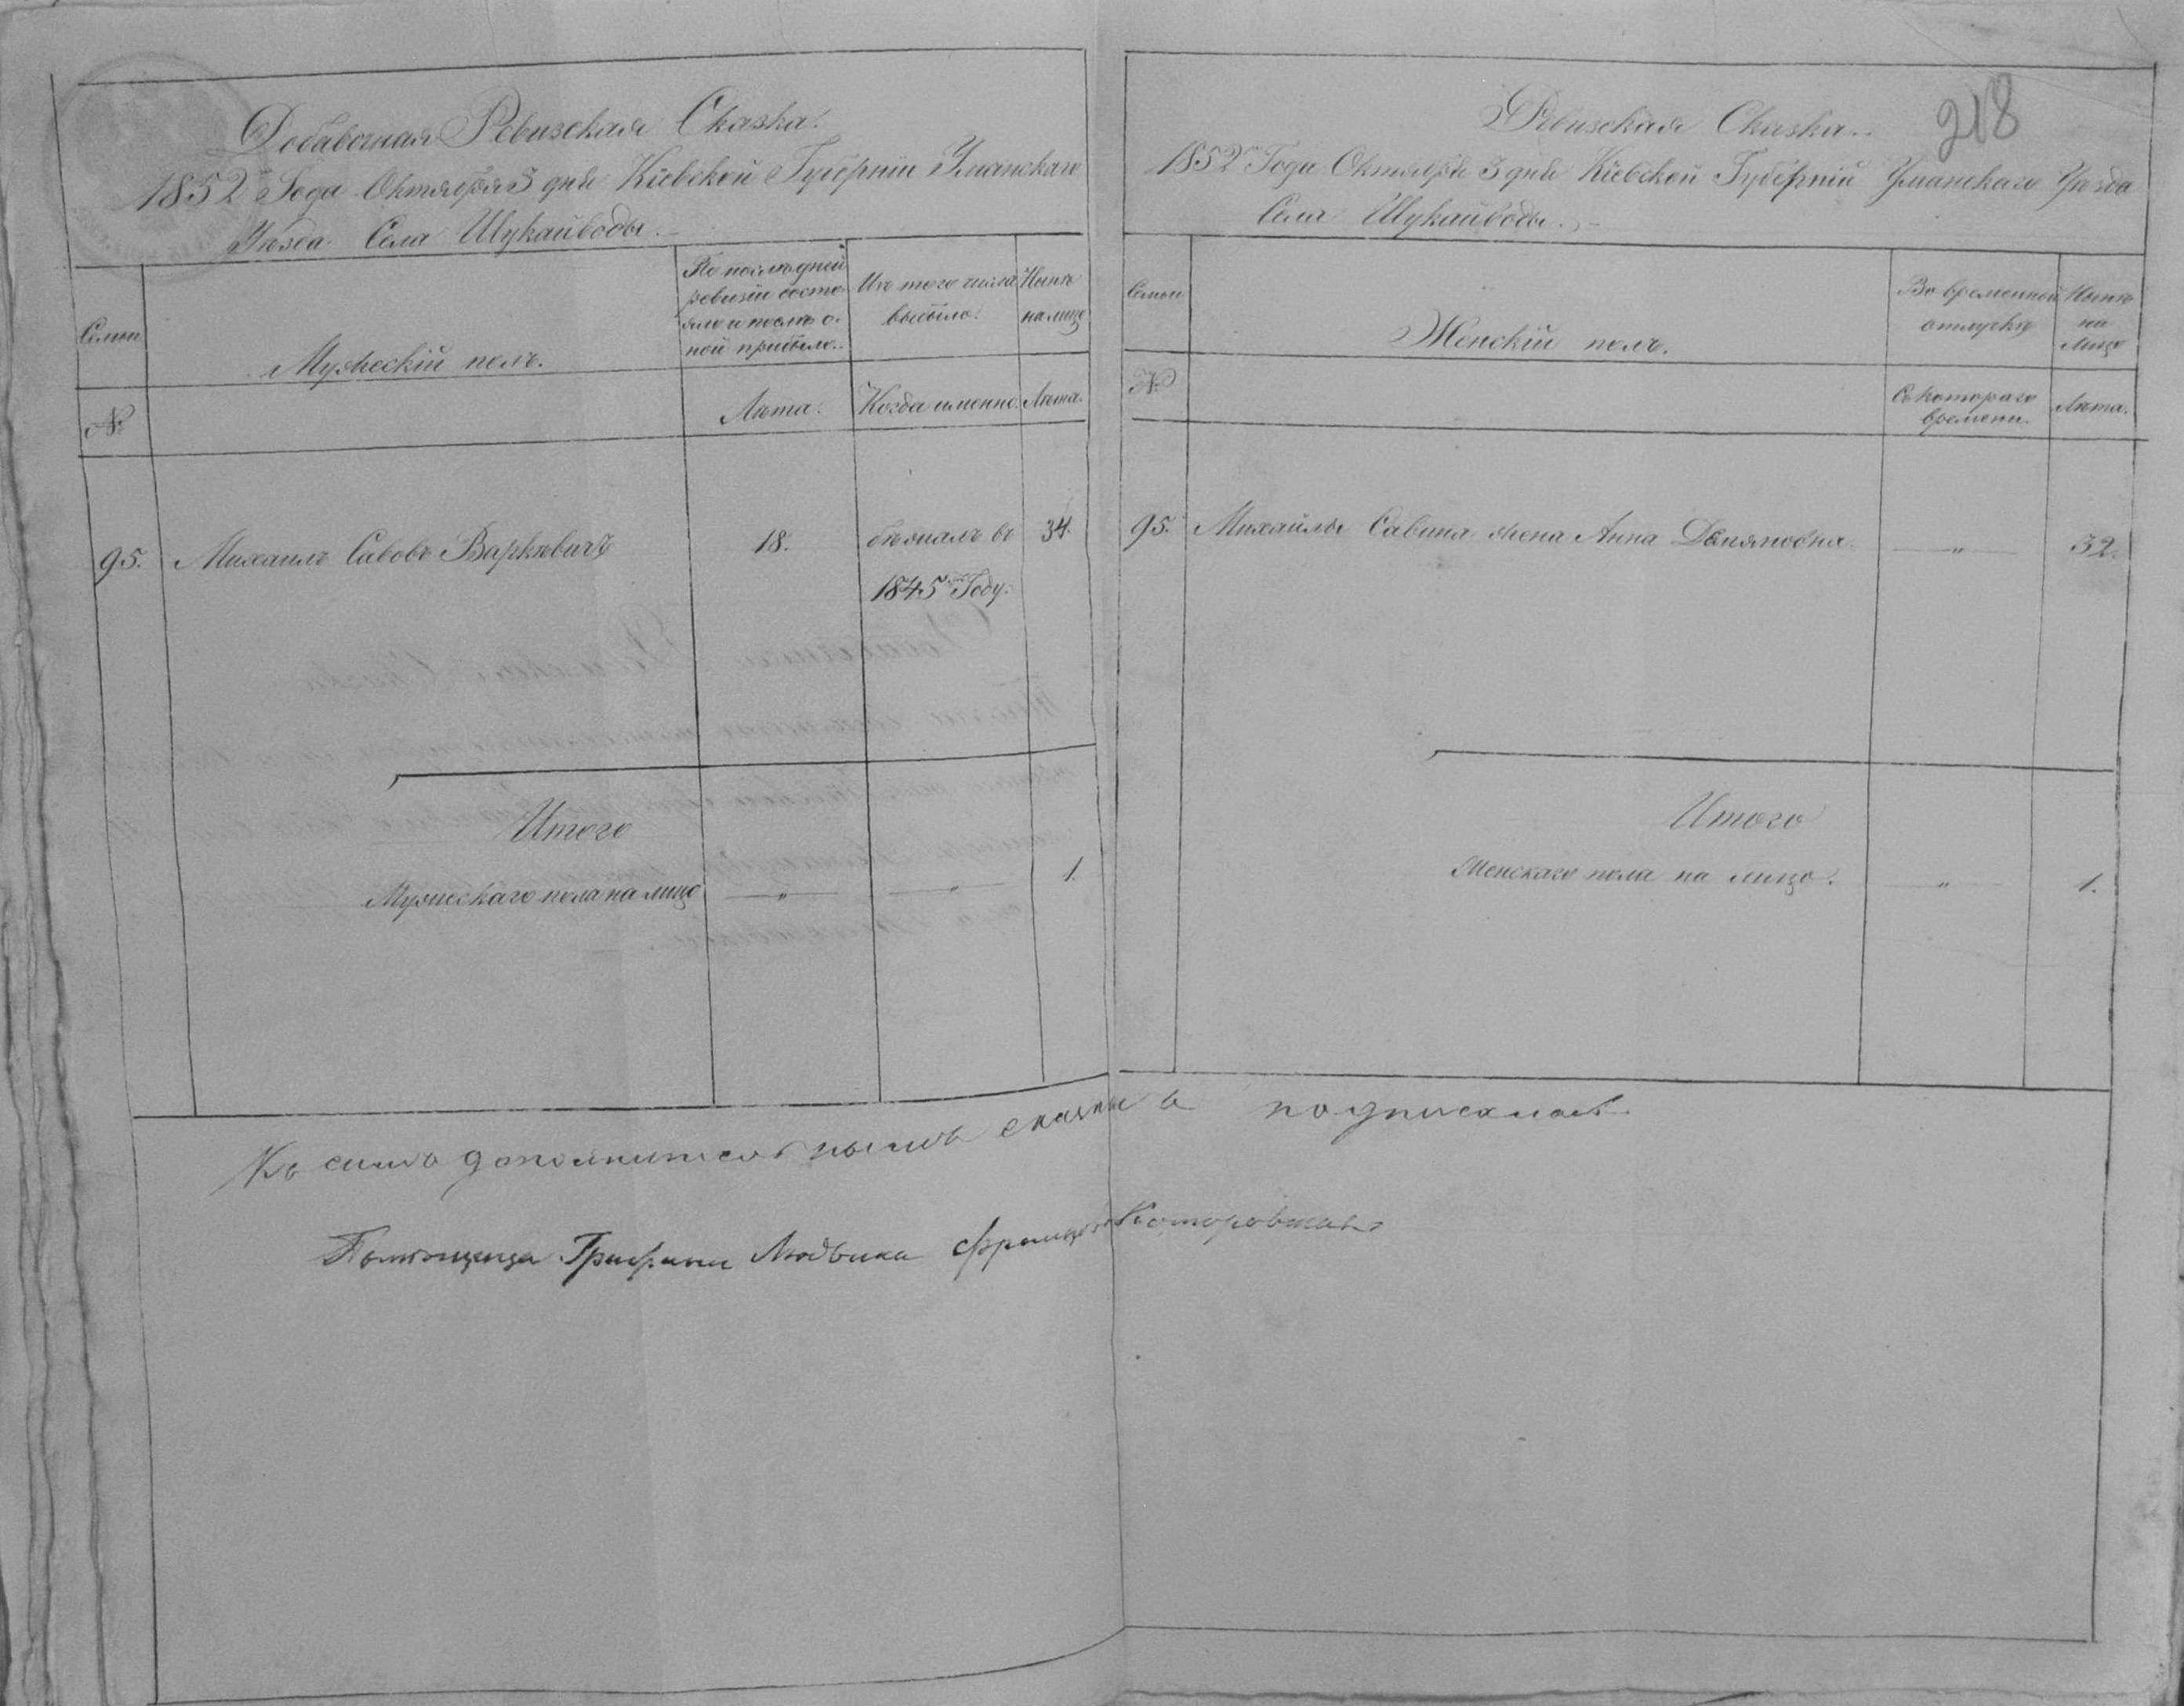 Добавочная Ревизская Сказка.
1852 Года Октября 3 дня Кіевской Губерніи Уманскаго
Уезда Села Шукайводы.
Семьи
Мужескій полъ.
По последней
ревизіи состо-
яло и после о-
ной прибыло.
Изъ того числа
выбыло.
Ныне
на лицо
№
Лета.
Когда именно.
Лета.
95.
Михаилъ Савовъ Варкевичъ
18.
бежалъ въ
1845 Году.
34.
Итого
Мужескаго пола на лицо
1.
218
Ревизская Сказка.
1852 Года Октября 3 дня Кіевской Губерніи Уманскаго Уезда
Села Шукайводы.
Семьи
Женскій полъ.
Во временной
отлучке
Ныне
на
лицо
№
Съ котораго
времени.
Лета.
95.
Михайлы Савина жена Анна
32.
Итого
Женскаго пола на лицо.
1.
Къ сима подписалась
Помещица Людвика